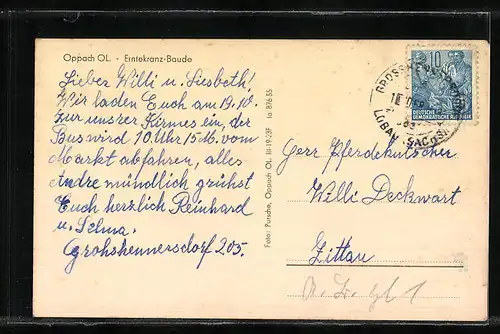 Oppach OL. - Erntekranz-Baude
Lieber Willi u. Liesbeth!
Wir laden Euch am 19.10.
zur unsrer Kirmes ein, der
Bus wird 10 Uhr 15 M. vom
Markt abfahren, alles
Andre mündlich grühst
Euch herzlich Reinhard
u. Selma.
Grohshennersdorf 205.
Foto: Pursche, Oppach OL III-19-23F Ia 876 55
10
DEUTSCHE
DEMOKRATISCHE REPUBLIK
LÖBAU (SACHS)
Herr Pferdekutscher
Willi Deckwart
Zittau